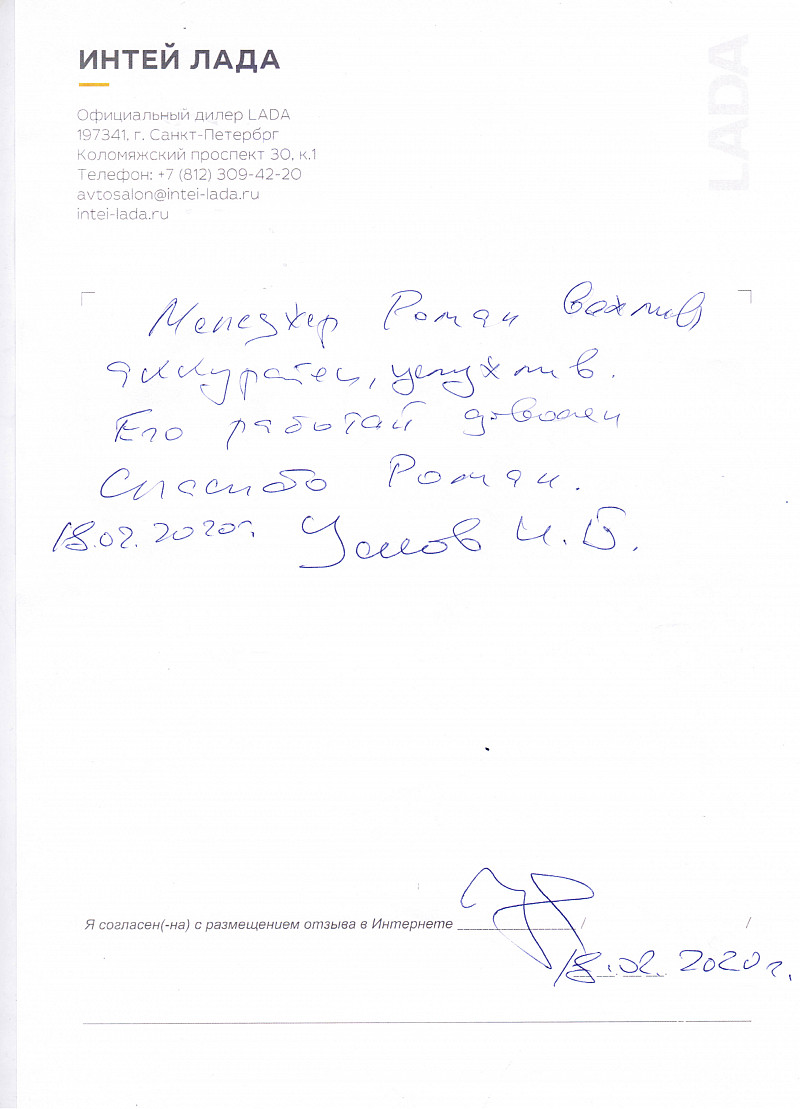 ИНТЕЙ ЛАДА
LADA
Официальный дилер LADA
197341, г. Санкт-Петербрг
Коломяжский проспект 30, к.1
Телефон: +7 (812) 309-42-20
avtosalon@intei-lada.ru
intei-lada.ru
Менеджер Роман вежлив,
аккуратен, услужлив.
Его работай доволен
Спасибо Роман.
18.02.2020г. И.Б.
Я согласен(-на) с размещением отзыва в Интернете / /
18.02.2020г.